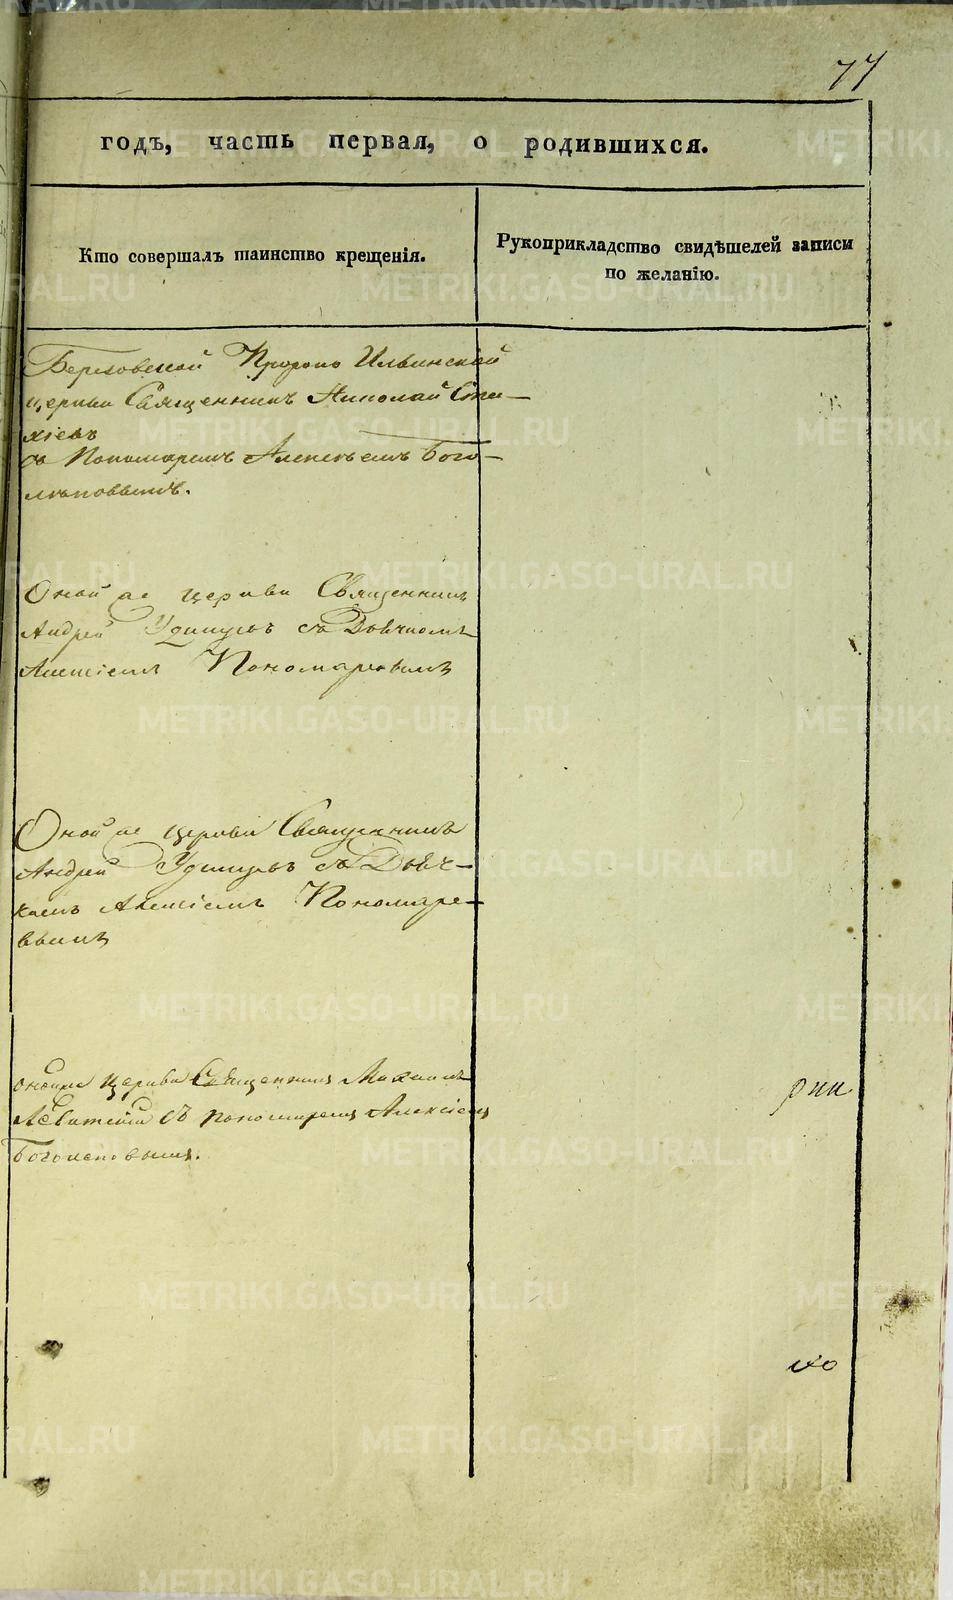 77
годъ, часть первая, о родившихся.
Кто совершалъ таинство крещенія.
Рукоприкладство свидѣтелей записи
по желанію.
Березовской Пророко Ильинской
церкви Священникъ Николай
съ Пономаремъ Алексѣемъ Бого-
лѣповымъ.
Оной же церкви Священникъ
Андрей Удинцовъ съ Дьячкомъ
Алексіемъ Пономаревымъ
Оной же церкви Священникъ
Андрей Удинцовъ съ Дьяч-
комъ Алексіемъ Пономаре-
вымъ
церкви Священникъ Михаилъ
Левитскій съ пономаремъ Алексіемъ
Боголеповымъ.
METRIKI.GASO-URAL.RU